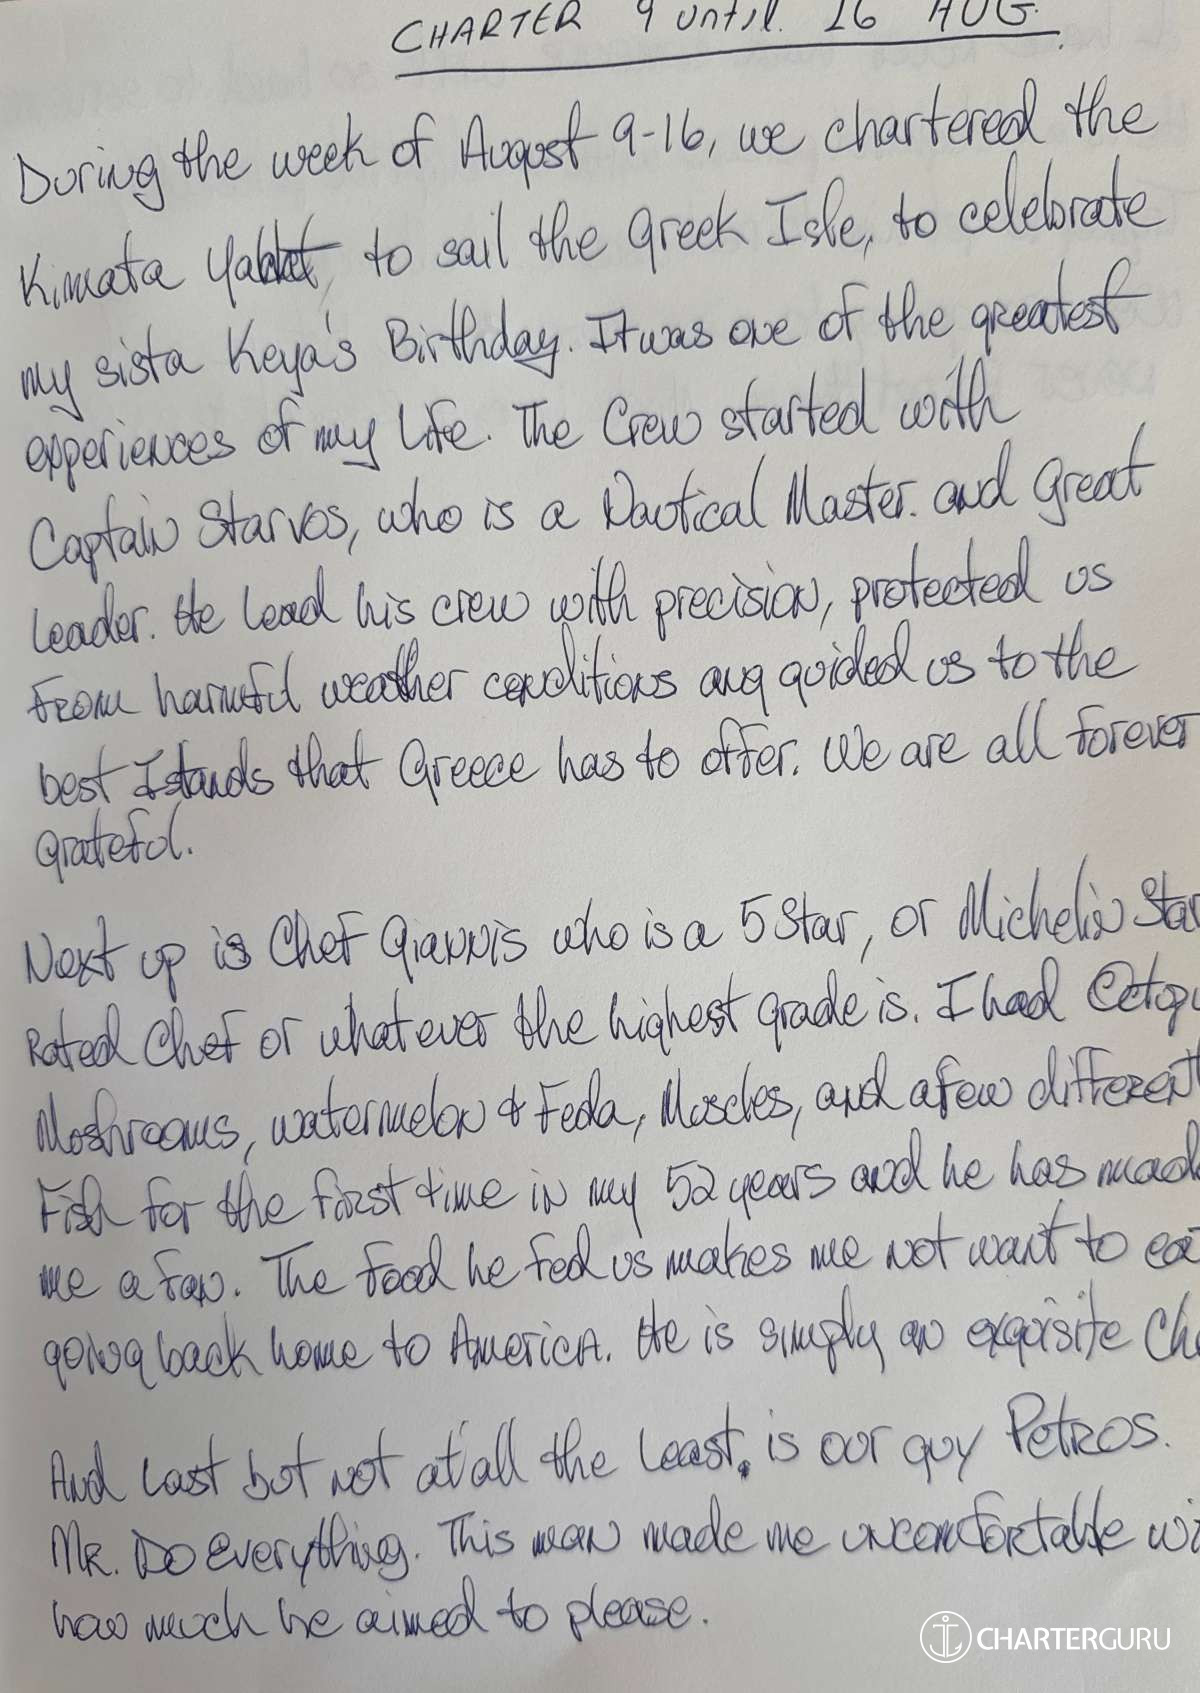 CHARTER 9 until 16 AUG.
During the week of August 9-16, we chartered the
Kimata Yahkt, to sail the Greek Isle, to celebrate
my sista Keya's Birthday. It was one of the greatest
experiences of my Life. The Crew started with
Captain Starvos, who is a Nautical Master. and Great
Leader. He Lead his crew with precision, protected us
From harmful weather conditions ang guided us to the
best Islands that Greece has to offer. We are all Forever
Grateful.
Next up is Chef Giannis who is a 5 Star, or Michelin Star
Rated Chef or whatever the highest grade is. I had Octopu
Mushrooms, watermelon & Feda, Muscles, and a few different
Fish for the first time in my 52 years and he has mad
me a fan. The Food he Fed us makes me not want to eat
going back home to America. He is simply an exquisite Che
And Last but not at all the Least, is our guy PETROS.
MR. DO Everything. This man made me uncomfortable wi
how much he aimed to please.
CHARTERGURU